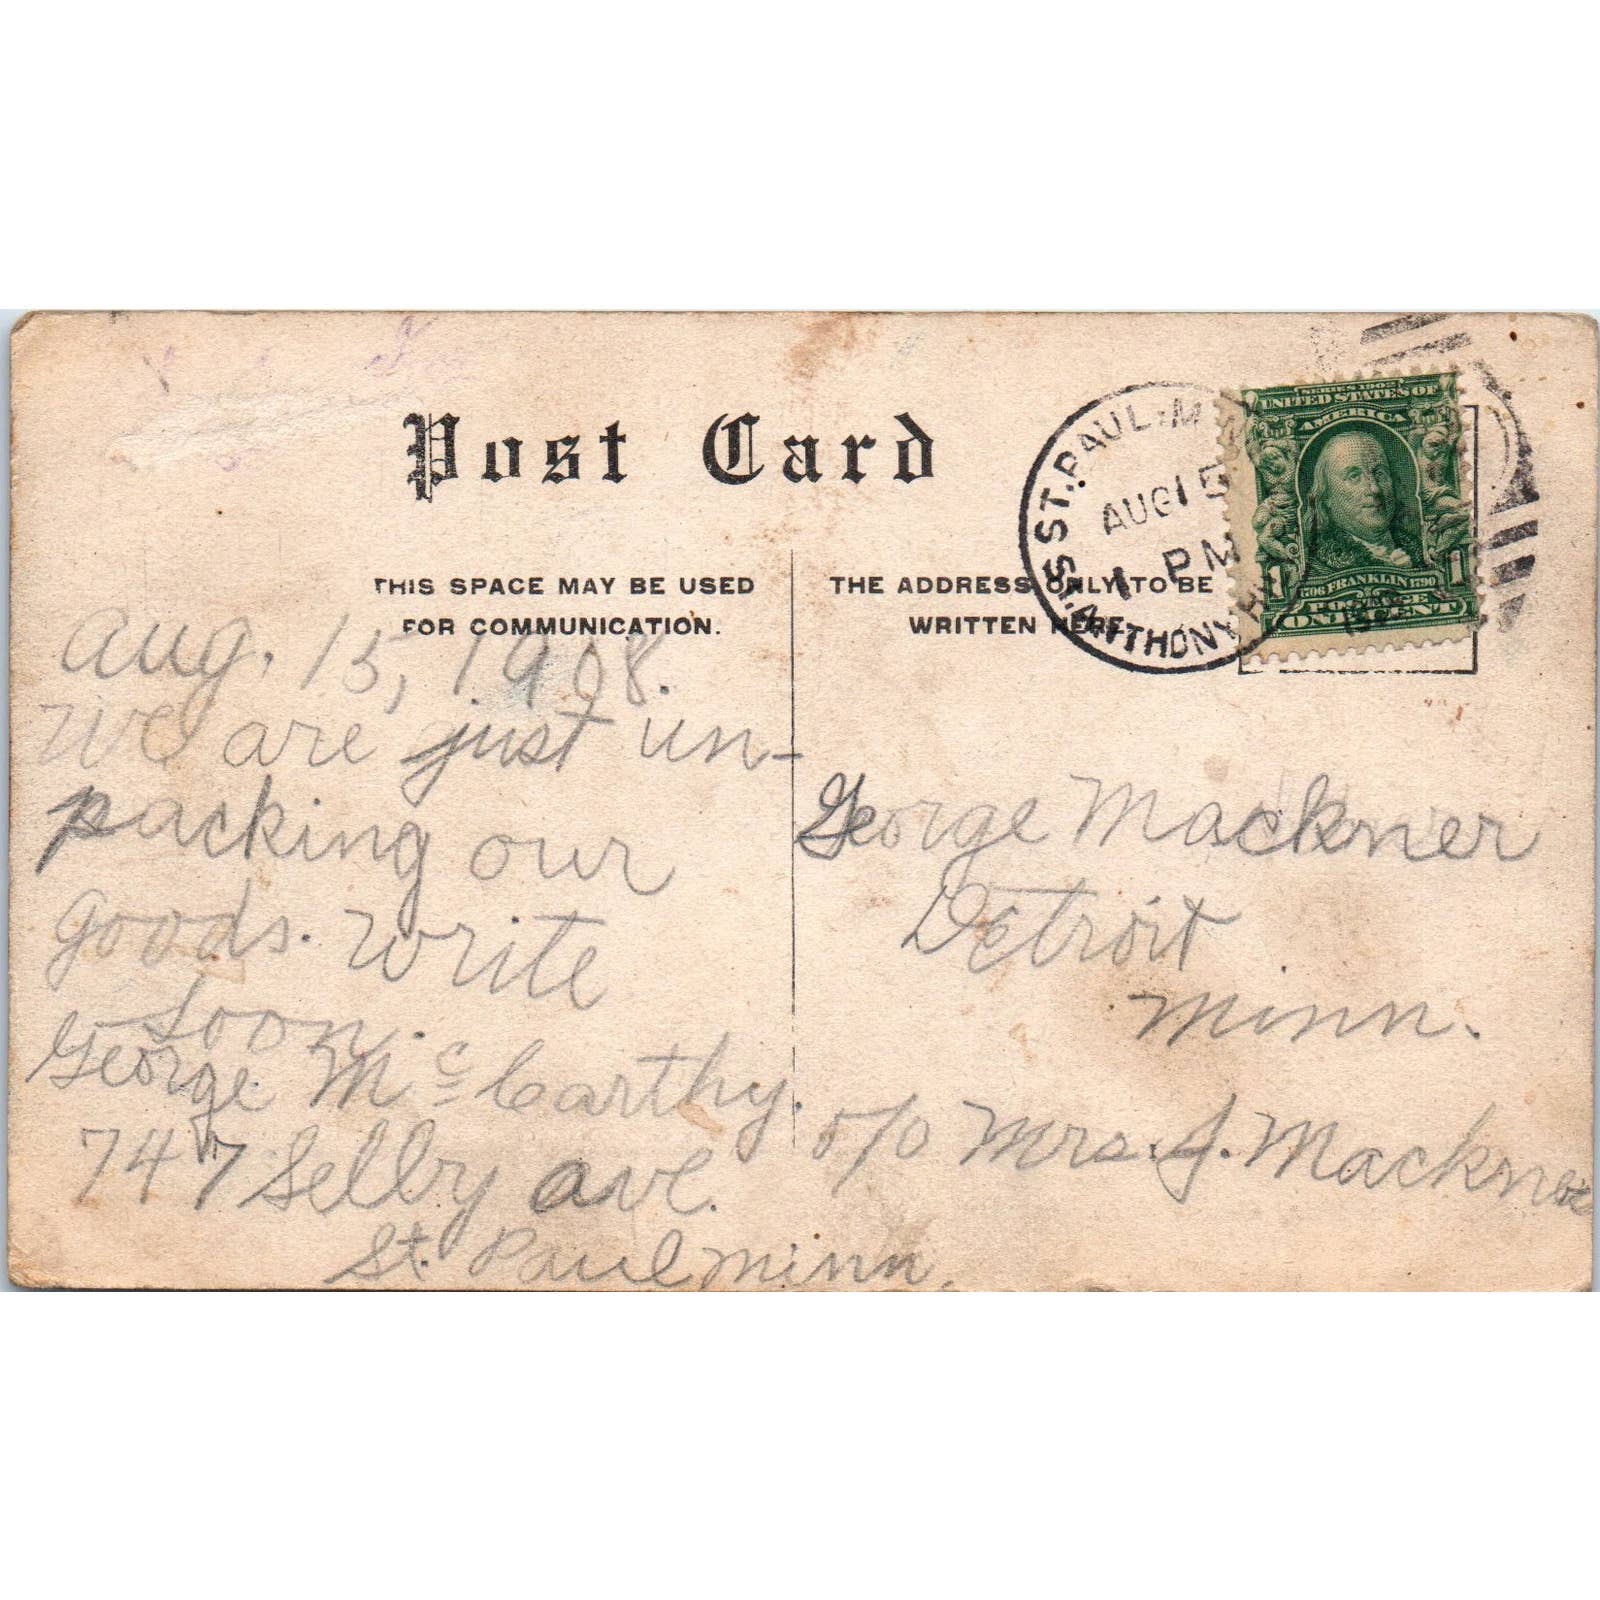 Post Card
THIS SPACE MAY BE USED
FOR COMMUNICATION.
THE ADDRESS ONLY TO BE
WRITTEN HERE
ST. PAUL. M
AUG 15
1 PM
ST. ANTHONY H
SERIES 1902
UNITED STATES OF
AMERICA
1706 FRANKLIN 1790
POSTAGE
1 1
ONE CENT
Aug. 15, 1908.
We are just un-
packing our
goods. Write
soon.
George Mc Carthy.
747 Selby ave.
St. Paul Minn.
George Mackner
Detroit
Minn.
c/o Mrs. J. Mackner